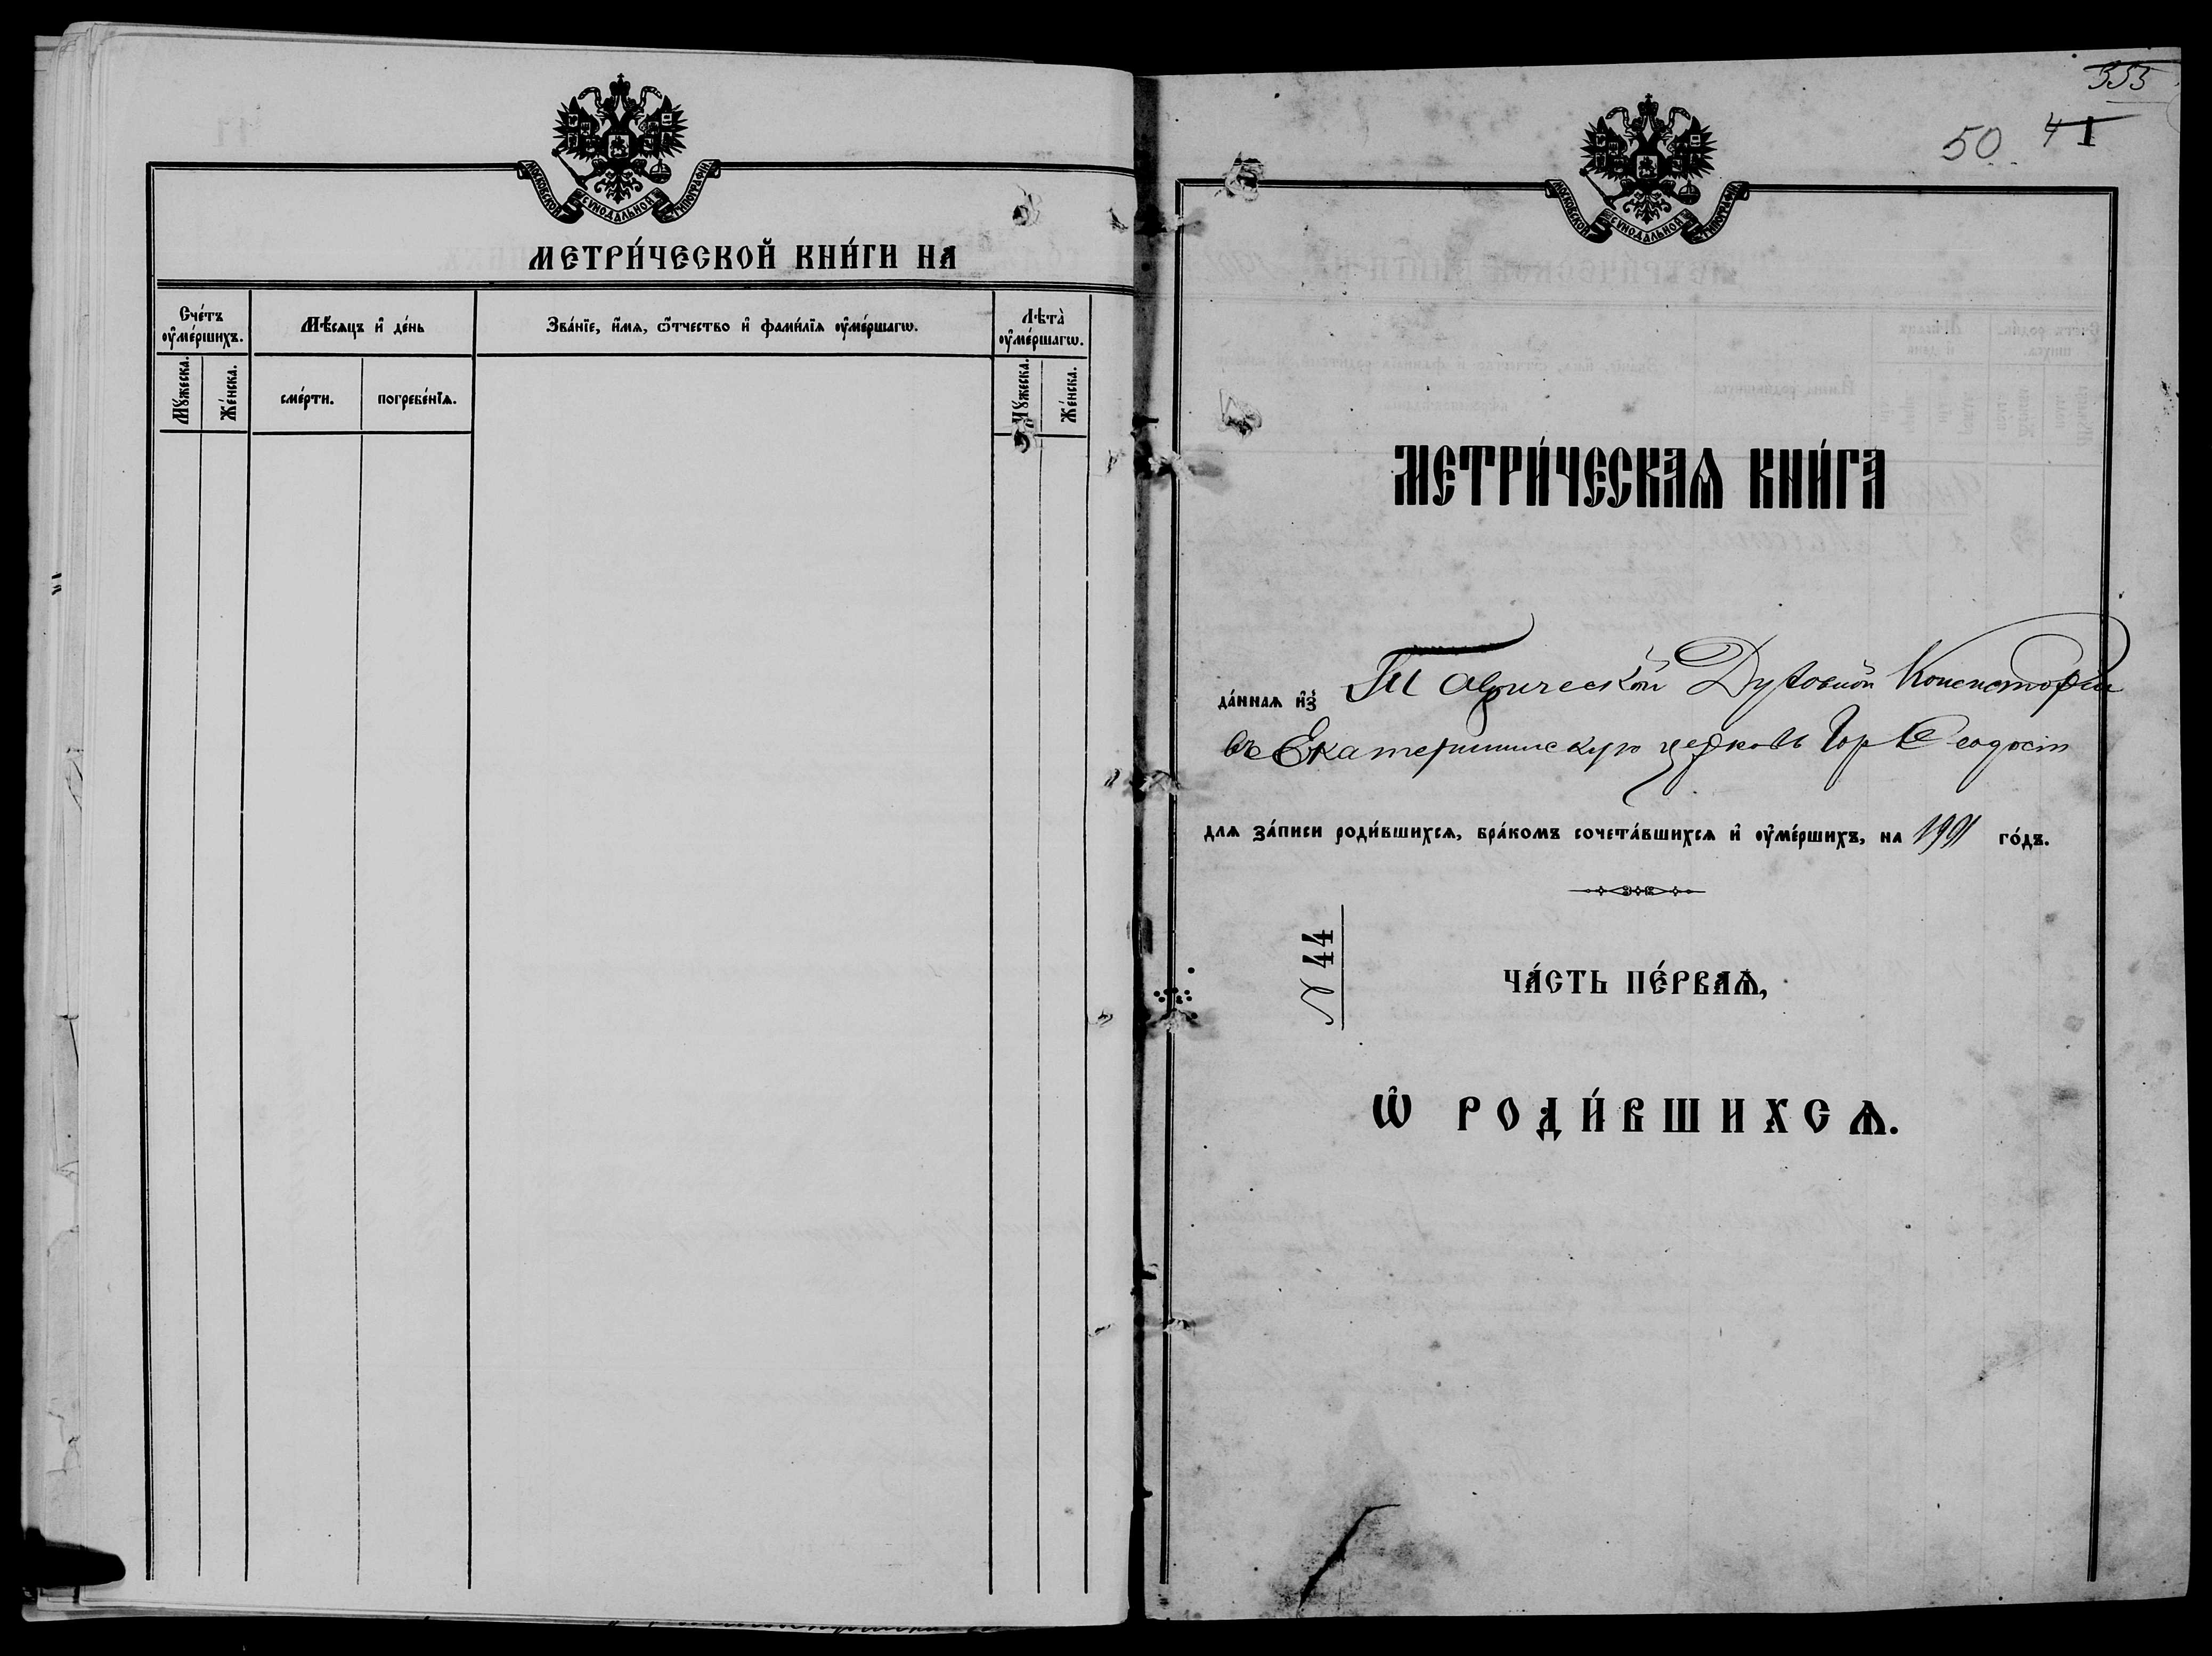 МОСКОВСКОЙ СѴНОДАЛЬНОЙ ТИПОГРАФІИ
МЕТРИ́ЧЕСКОЙ КНИ́ГИ НА
Сче́тъ оу҆ме́ршихъ.
Мѣ́сяцъ и҆ де́нь
Зва́нїе, и҆́мѧ, ѻ҆́тчество и҆ фами́лїѧ оу҆ме́ршагѡ.
Лѣта̀ оу҆ме́ршагѡ.
Мꙋ́жеска.
Же́нска.
сме́рти.
погребе́нїѧ.
Мꙋ́жеска.
Же́нска.
353
50
41
МОСКОВСКОЙ СѴНОДАЛЬНОЙ ТИПОГРАФІИ
МЕТРИ́ЧЕСКАѦ КНИ́ГА
да́ннаѧ и҆з̾ Таврической Духовной Консисторіи
въ Екатерининскую церковь гор Ѳеодосіи
для за́писи роди́вшихсѧ, бра́комъ сочета́вшихсѧ и҆ оу҆ме́ршихъ, на 1891 го́дъ.
N 44
ЧА́СТЬ ПЕ́РВАѦ,
Ѡ҆ РОДИ́ВШИХСѦ.